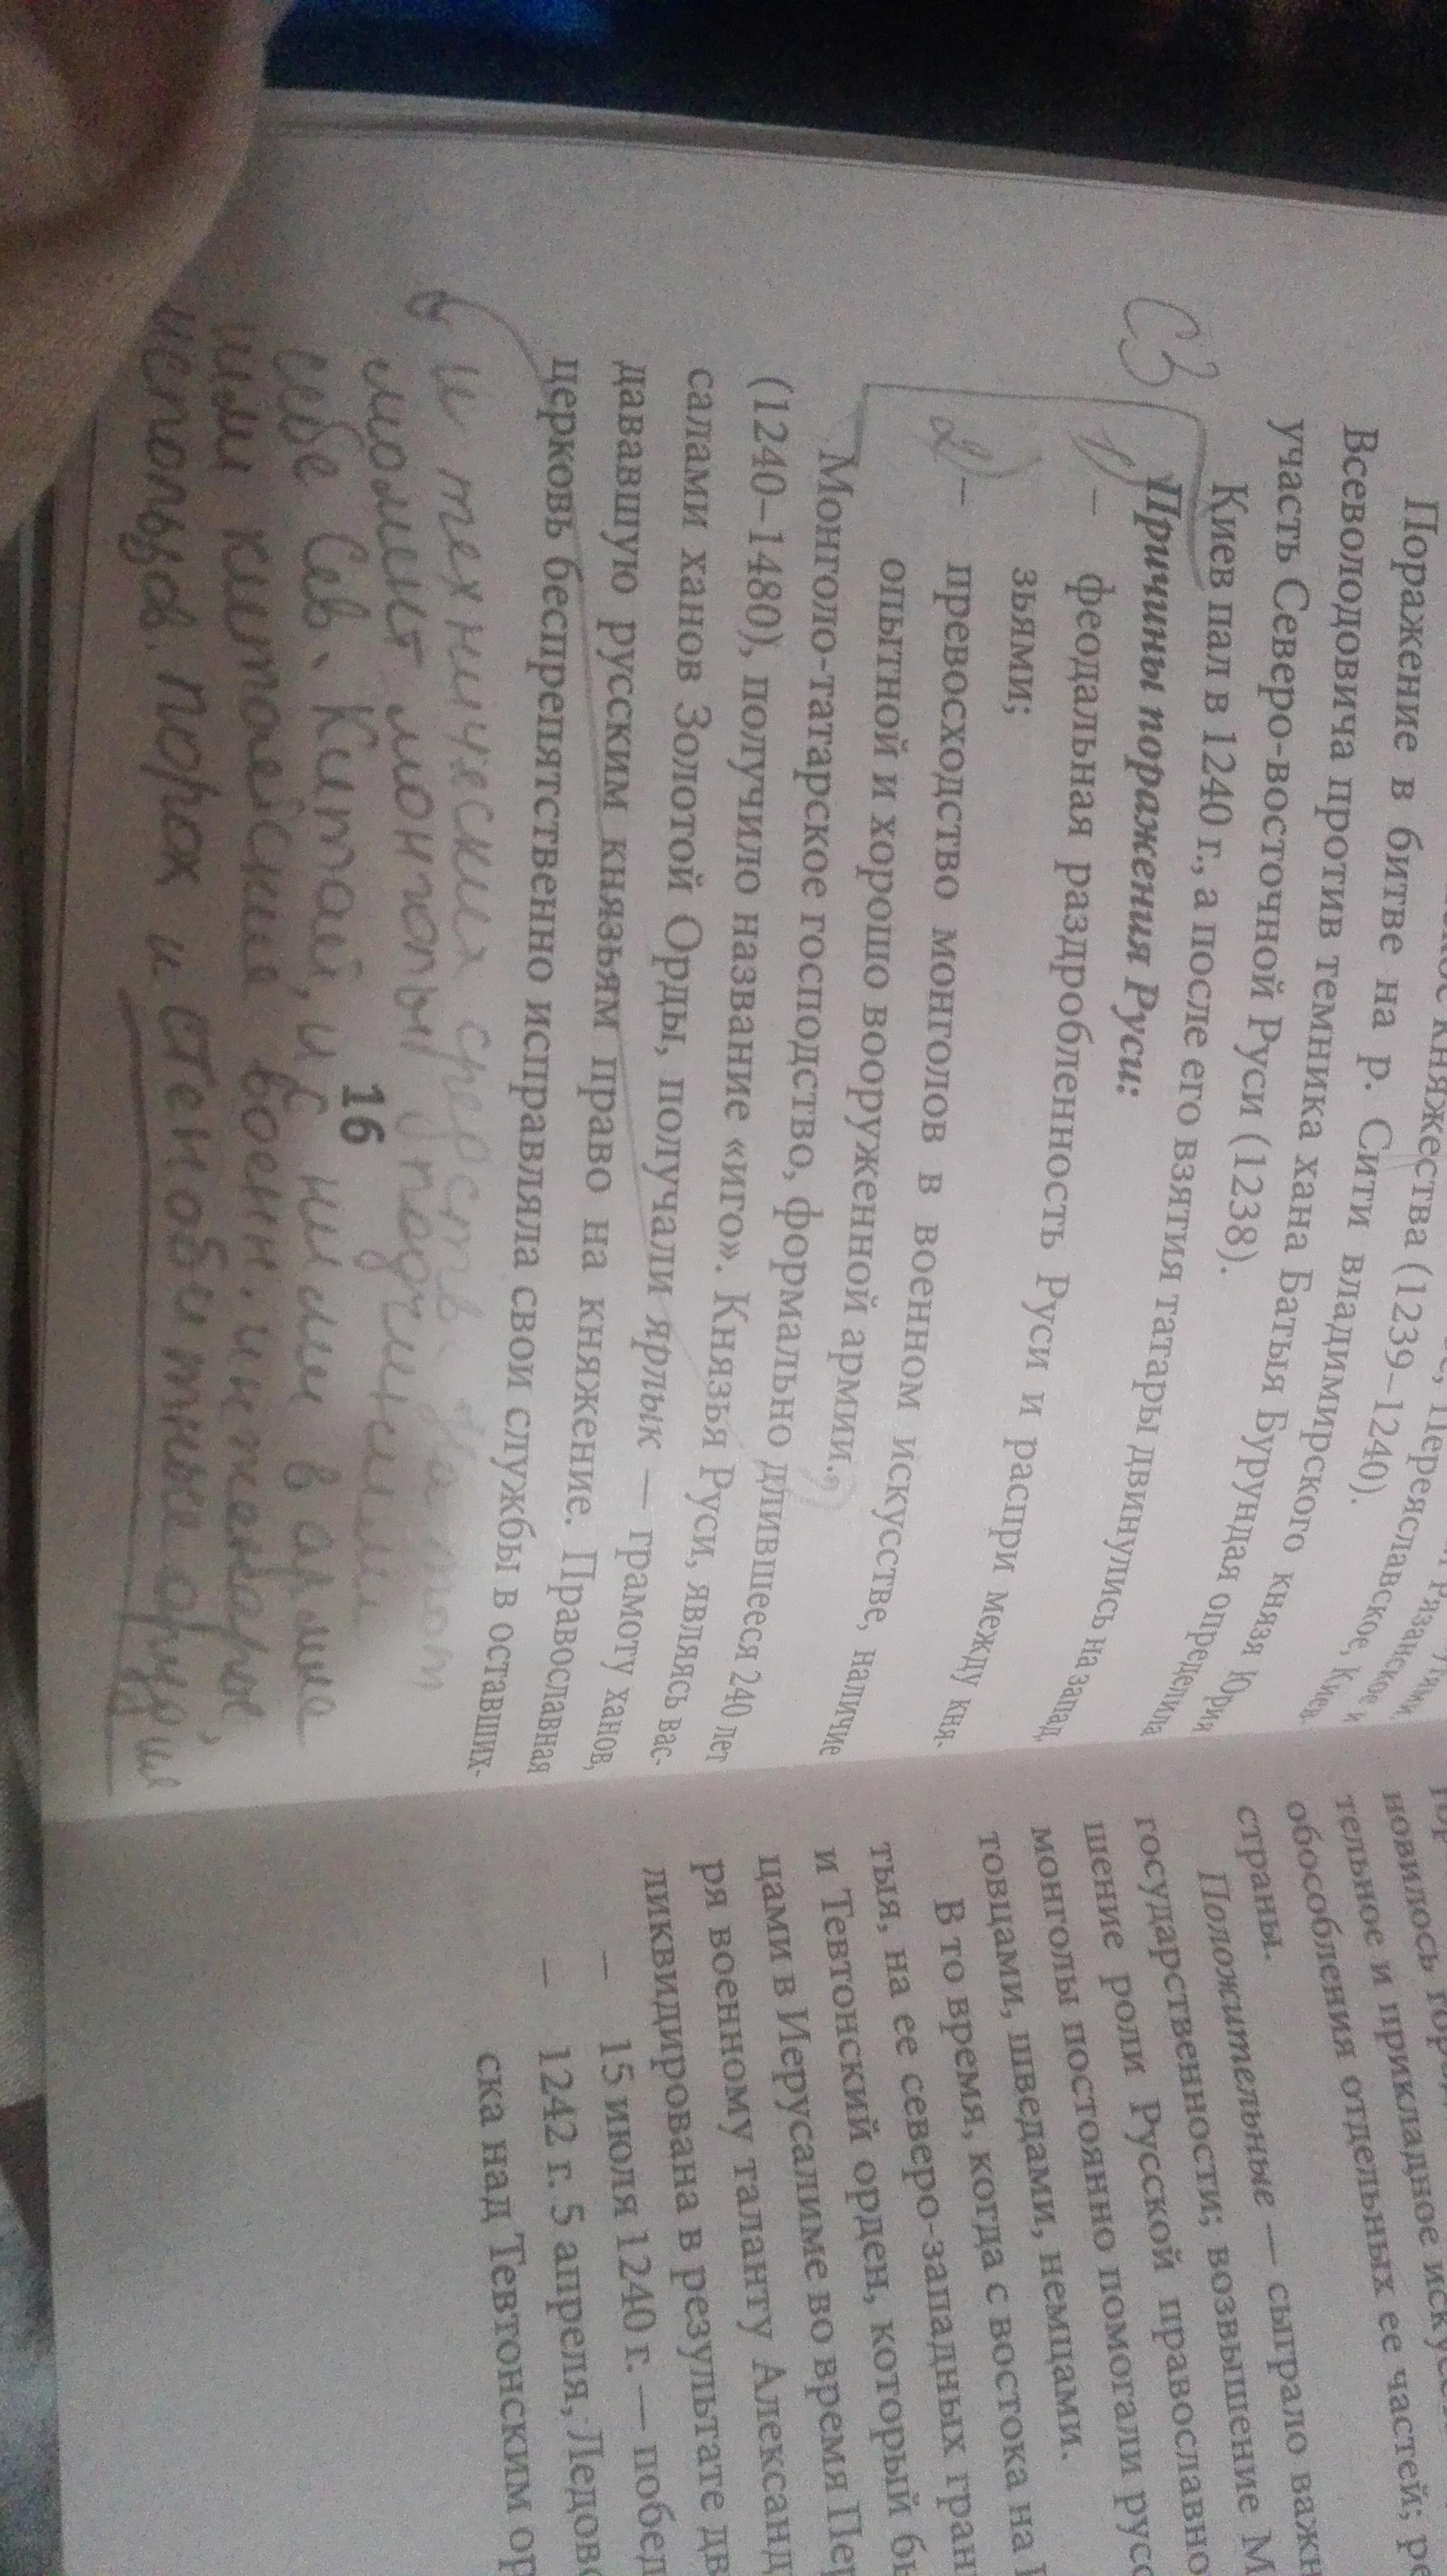 княжества (1239–1240). Переяславское,
Поражение в битве на р. Сити владимирского князя Юрия
Всеволодовича против темника хана Батыя Бурундая определила
участь Северо-восточной Руси (1238).
Киев пал в 1240 г., а после его взятия татары двинулись на запад.
С3
Причины поражения Руси:
1) – феодальная раздробленность Руси и распри между кня-
зьями;
2) – превосходство монголов в военном искусстве, наличие
опытной и хорошо вооруженной армии.
Монголо-татарское господство, формально длившееся 240 лет
(1240–1480), получило название «иго». Князья Руси, являясь вас-
салами ханов Золотой Орды, получали ярлык — грамоту ханов,
дававшую русским князьям право на княжение. Православная
церковь беспрепятственно исправляла свои службы в оставших-
и технических средств. На тот
момент монголы подчинили
себе Сев. Китай, и с ними в армии
шли китайские военн. инженеры,
использов. порох и стенобитные орудия
16
новилось
тельное и прикладное
обособления отдельных ее частей;
страны.
Положительные — сыграло
государственности; возвышение
шение роли Русской
монголы постоянно помогали
товцами, шведами, немцами.
В то время, когда с востока на
тыя, на ее северо-западных
и Тевтонский орден, который
цами в Иерусалиме во время
ря военному таланту
ликвидирована в результате
– 15 июля 1240 г. —
– 1242 г. 5 апреля,
ска над Тевтонским